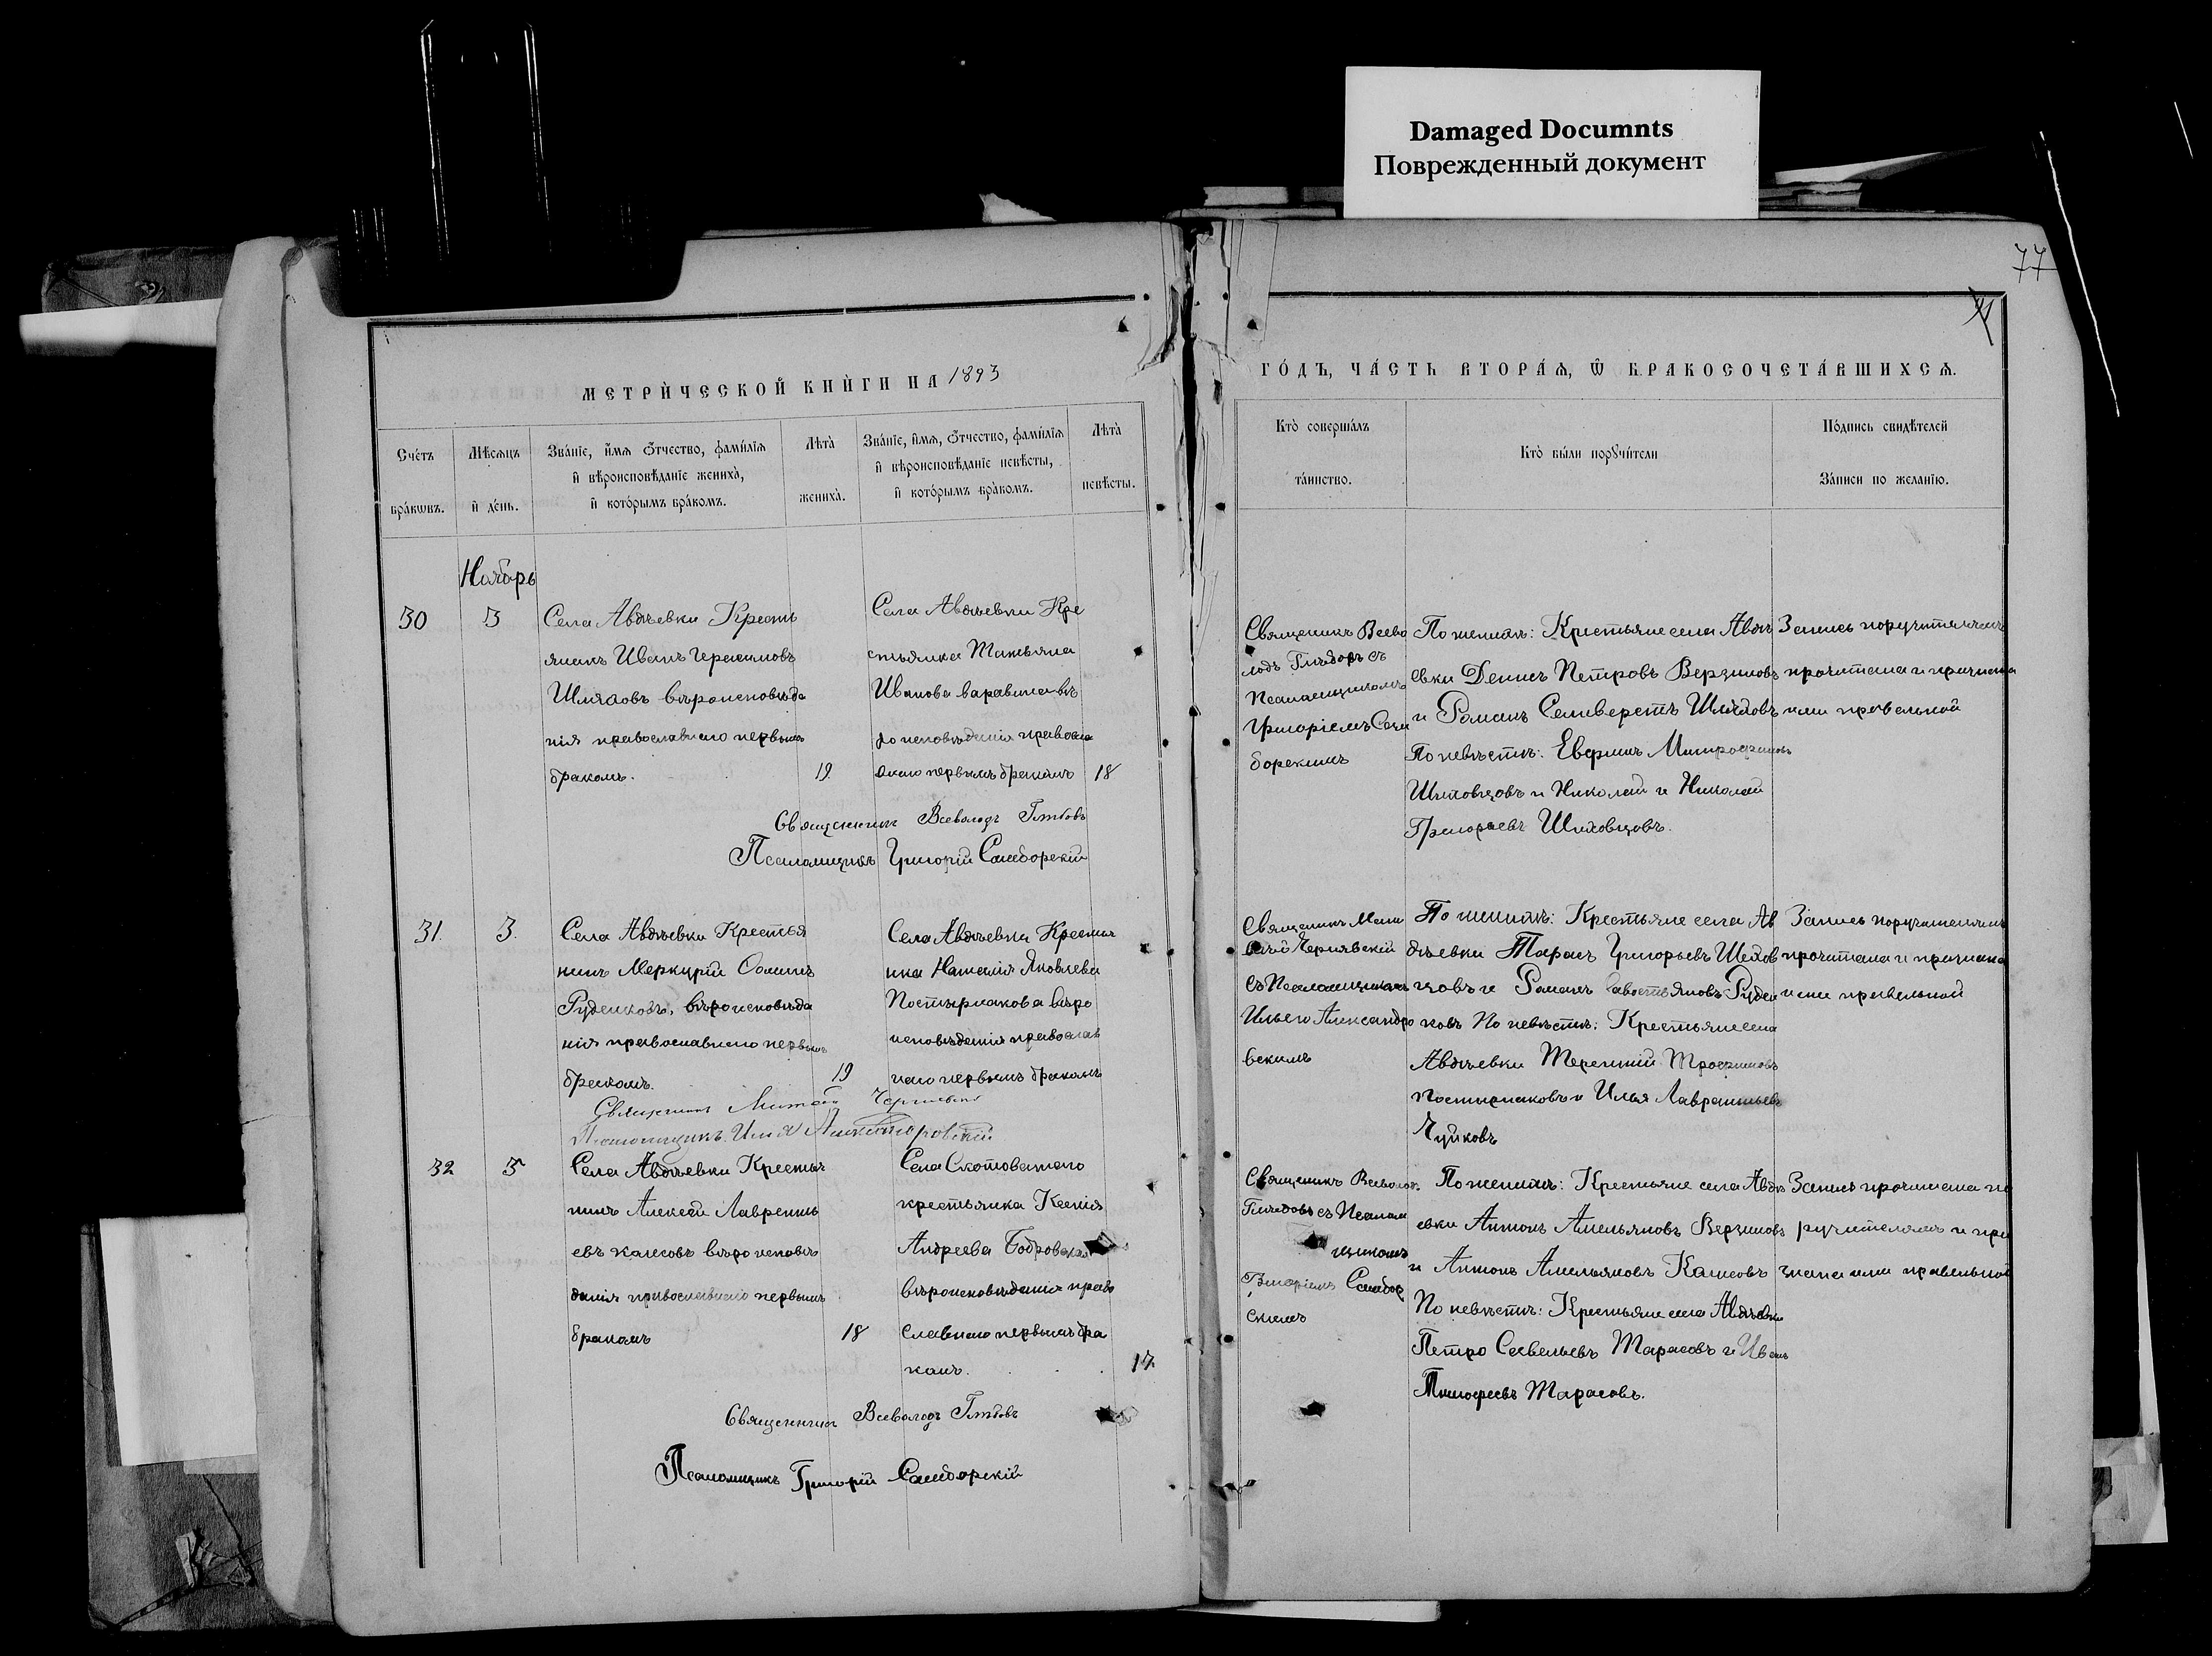 Damaged Documnts
Поврежденный документ
77
МЕТРИ́ЧЕСКОЙ КНИ́ГИ НА 1893
ГО́ДЪ, ЧА́СТЬ ВТОРА́Ѧ, Ѿ БРАКОСОЧЕТА́ВШИХСѦ.
Сче́тъ
бра́кѡвъ.
Мѣ́сѧцъ
и де́нь.
Зва́нїе, и́мѧ ѻ́тчество, фами́лїѧ
и вѣроисповѣ́данїе жениха̀,
и кото́рымъ бра́комъ.
Лѣта̀
жениха̀.
Зва́нїе, и́мѧ, ѻ́тчество, фами́лїѧ
и вѣроисповѣ́данїе невѣ́сты,
и кото́рымъ бра́комъ.
Лѣта̀
невѣ́сты.
Кто̀ соверша́лъ
та́инство.
Кто̀ бы́ли порꙋчи́тели
По́дпись свидѣ́телей
За́писи по жела́нїю.
Ноябрь
30
3
Села Авдѣевки Кресть
янинъ Иванъ Герасимовъ
Шляховъ вѣроисповѣда
нія православнаго первымъ
бракомъ.
19.
Села Авдѣевки Кре
стьянка Татьяна
Иванова Каравина вѣ
роисповѣданія правосла
внаго первымъ бракомъ
18
Священникъ Всево
лодъ Глѣбовъ съ
Псаломщикомъ
Григоріемъ Самборскимъ
По женихѣ: Крестьяне села Авдѣ
евки Денисъ Петровъ Верзиловъ
и Романъ Селиверстъ Шляховъ
По невѣстѣ: Ефимъ Митрофановъ
Шиховцовъ и Николай и Николай
Григорьевъ Шиховцовъ.
Запись поручителямъ
прочитана и признана
ими правельной
Священникъ Всеволодъ Глѣбовъ
Псаломщикъ Григорій Самборскій
31.
3.
Села Авдѣевки Крестья
нинъ Меркурій Ооминъ
Руденковъ, вѣроисповѣда
нія православнаго первымъ
бракомъ.
19
Села Авдѣевки Крестья
нка Наталія Яковлева
Постырнакова вѣро
исповѣданія православ
наго первымъ бракомъ
Священникъ Мат
вѣй Чернявскій
съ Псаломщикомъ
Ильею Александро
вскимъ
По женихѣ: Крестьяне села Ав
дѣевки Тарасъ Григорьевъ Шихов
цовъ и Романъ Савостьяновъ Руден
ковъ По невѣстѣ: Крестьяне села
Авдѣевки Терентій Трофимовъ
Постырнаковъ и Илья Лаврентьевъ
Чуйковъ
Запись поручителямъ
прочитана и признана
ими правельной
Священникъ Матвѣй Чернявскій
Псаломщикъ Илія Александровскій
32
5
Села Авдѣевки Крестья
нинъ Алексѣй Лавренть
евъ Калюсовъ вѣроисповѣ
данія православнаго первымъ
бракомъ
18
Села Скотоватаго
крестьянка Ксенія
Андреева Бобровская
вѣроисповѣданія право
славнаго первымъ бра
комъ.
17.
Священникъ Всеволодъ
Глѣбовъ съ Псалом
щикомъ
Григоріемъ Самбор
скимъ
По женихѣ: Крестьяне села Авдѣ
евки Антонъ Амельяновъ Верзиловъ
и Антонъ Амельяновъ Калюсовъ
По невѣстѣ: Крестьяне села Авдѣевки
Петро Савельевъ Тарасовъ и Иванъ
Тимофеевъ Тарасовъ.
Запись прочитана по
ручителямъ и при
знана ими правельной
Священникъ Всеволодъ Глѣбовъ
Псаломщикъ Григорій Самборскій